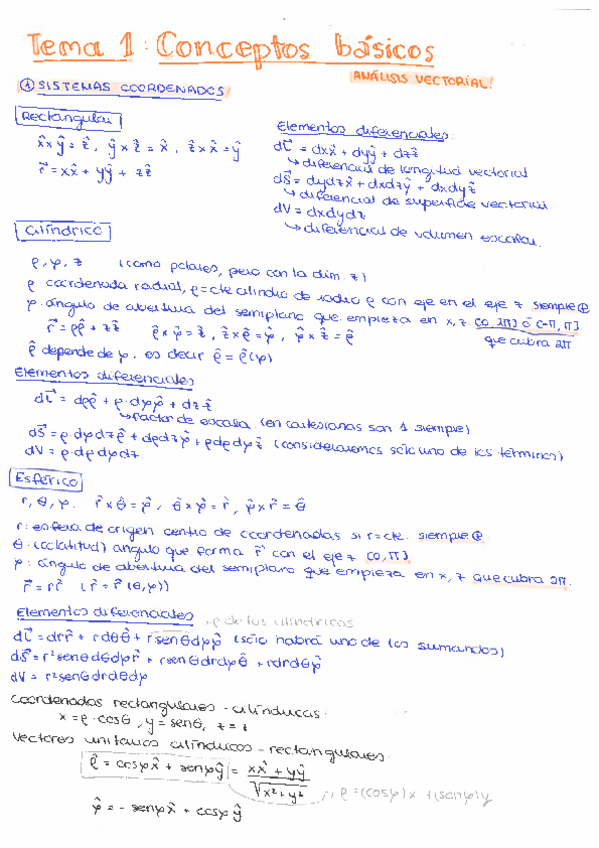 Tema 1: Conceptos básicos
ANÁLISIS VECTORIAL
① SISTEMAS COORDENADOS
Rectangular
x̂ × ŷ = ẑ, ŷ × ẑ = x̂, ẑ × x̂ = ŷ
r⃗ = xx̂ + yŷ + zẑ
Elementos diferenciales:
dL⃗ = dxx̂ + dyŷ + dzẑ
↳ diferencial de longitud vectorial
dS⃗ = dydzx̂ + dxdzŷ + dxdyẑ
↳ diferencial de superficie vectorial
dV = dxdydz
↳ diferencial de volumen escalar.
Cilíndrico
ρ, φ, z (como polares, pero con la dim. z)
ρ coordenada radial, ρ=cte cilindro de radio ρ con eje en el eje z siempre ⊕
φ: ángulo de abertura del semiplano que empieza en x, z. [0, 2π] ó [-π, π]
que cubra 2π
r⃗ = ρρ̂ + zẑ ρ̂ × φ̂ = ẑ, ẑ × ρ̂ = φ̂, φ̂ × ẑ = ρ̂
ρ̂ depende de φ, es decir ρ̂ = ρ̂(φ)
Elementos diferenciales
dL⃗ = dρρ̂ + ρ·dφφ̂ + dzẑ
↳ factor de escala (en cartesianas son 1 siempre)
dS⃗ = ρ·dφdzρ̂ + dρdzφ̂ + ρdρdφẑ (consideraremos sólo uno de los términos)
dV = ρ·dρdφdz.
Esférico
r, θ, φ. r̂ × θ̂ = φ̂, θ̂ × φ̂ = r̂, φ̂ × r̂ = θ̂
r: esfera de origen centro de coordenadas si r=cte. siempre ⊕
θ: (colatitud) ángulo que forma r⃗ con el eje z [0, π]
φ: ángulo de abertura del semiplano que empieza en x, z que cubra 2π.
r⃗ = rr̂ (r̂ = r̂(θ, φ))
Elementos diferenciales
ρ de las cilíndricas
dL⃗ = drr̂ + rdθθ̂ + rsenθdφφ̂ (sólo habrá uno de los sumandos)
dS⃗ = r²senθdθdφr̂ + rsenθdrdφθ̂ + rdrdθφ̂
dV = r²senθdrdθdφ
Coordenadas rectangulares - cilíndricas:
x = ρ·cosθ, y = senθ, z = z
Vectores unitarios cilíndricos - rectangulares
ρ̂ = cosφx̂ + senφŷ = xx̂ + yŷ / √x² + y²
ρ = (cosφ)x + (senφ)y
φ̂ = - senφx̂ + cosφŷ